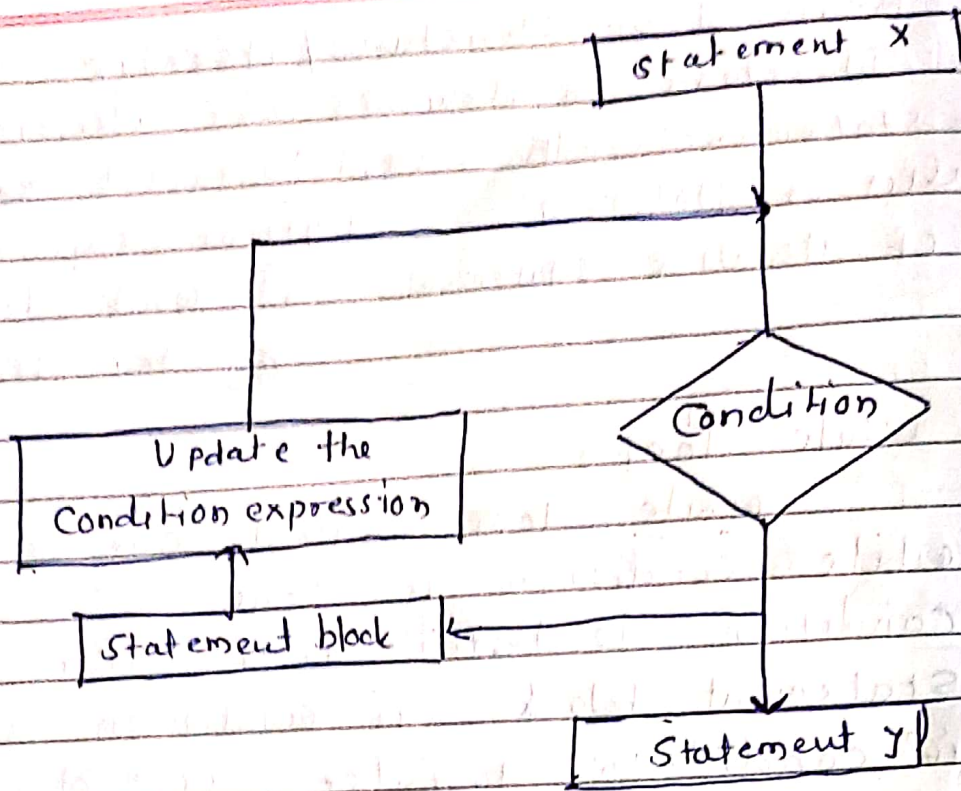 Statement X
Condition
Update the
Condition expression
Statement block
Statement y